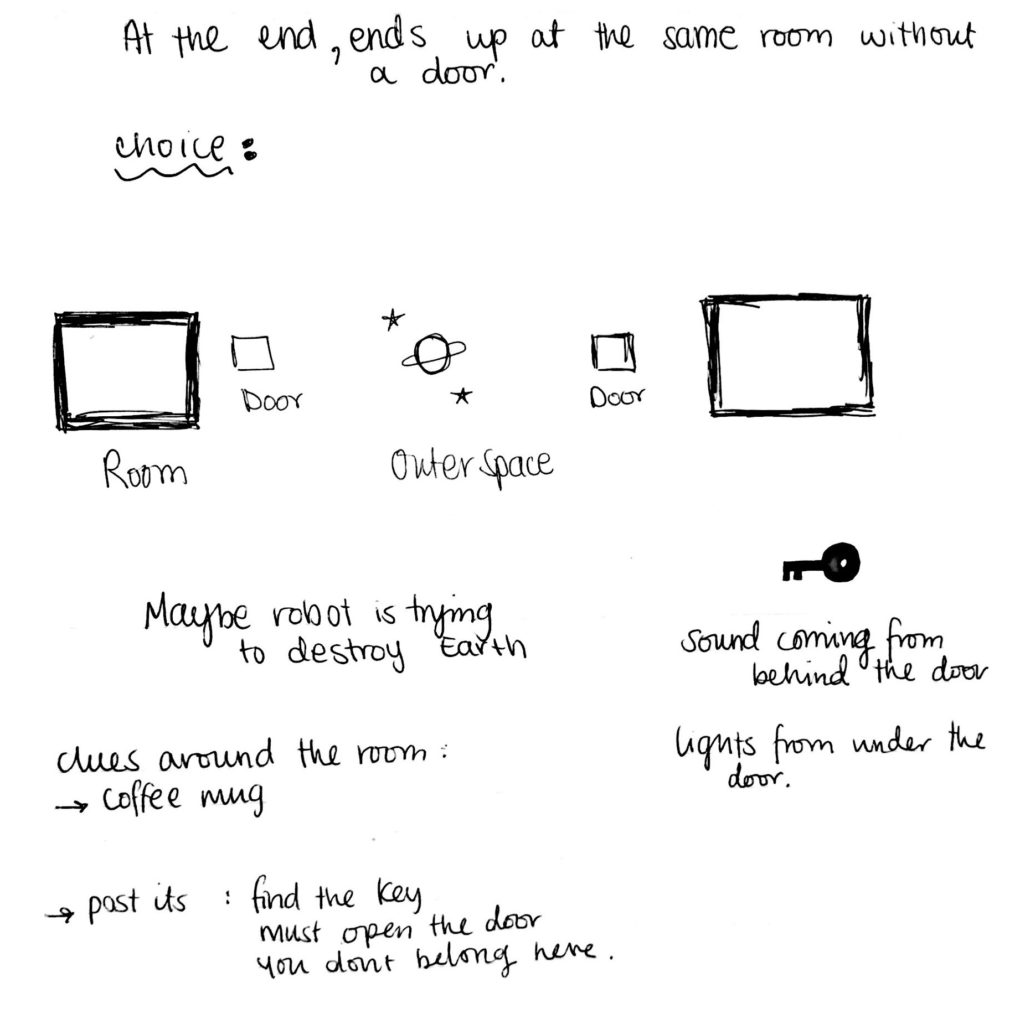 At the end, ends up at the same room without
a door.
choice:
Door
Door
Room
Outer Space
Maybe robot is trying
to destroy Earth
sound coming from
behind the door
lights from under the
door.
clues around the room:
→ coffee mug
→ post its : find the key
must open the door
you dont belong here.